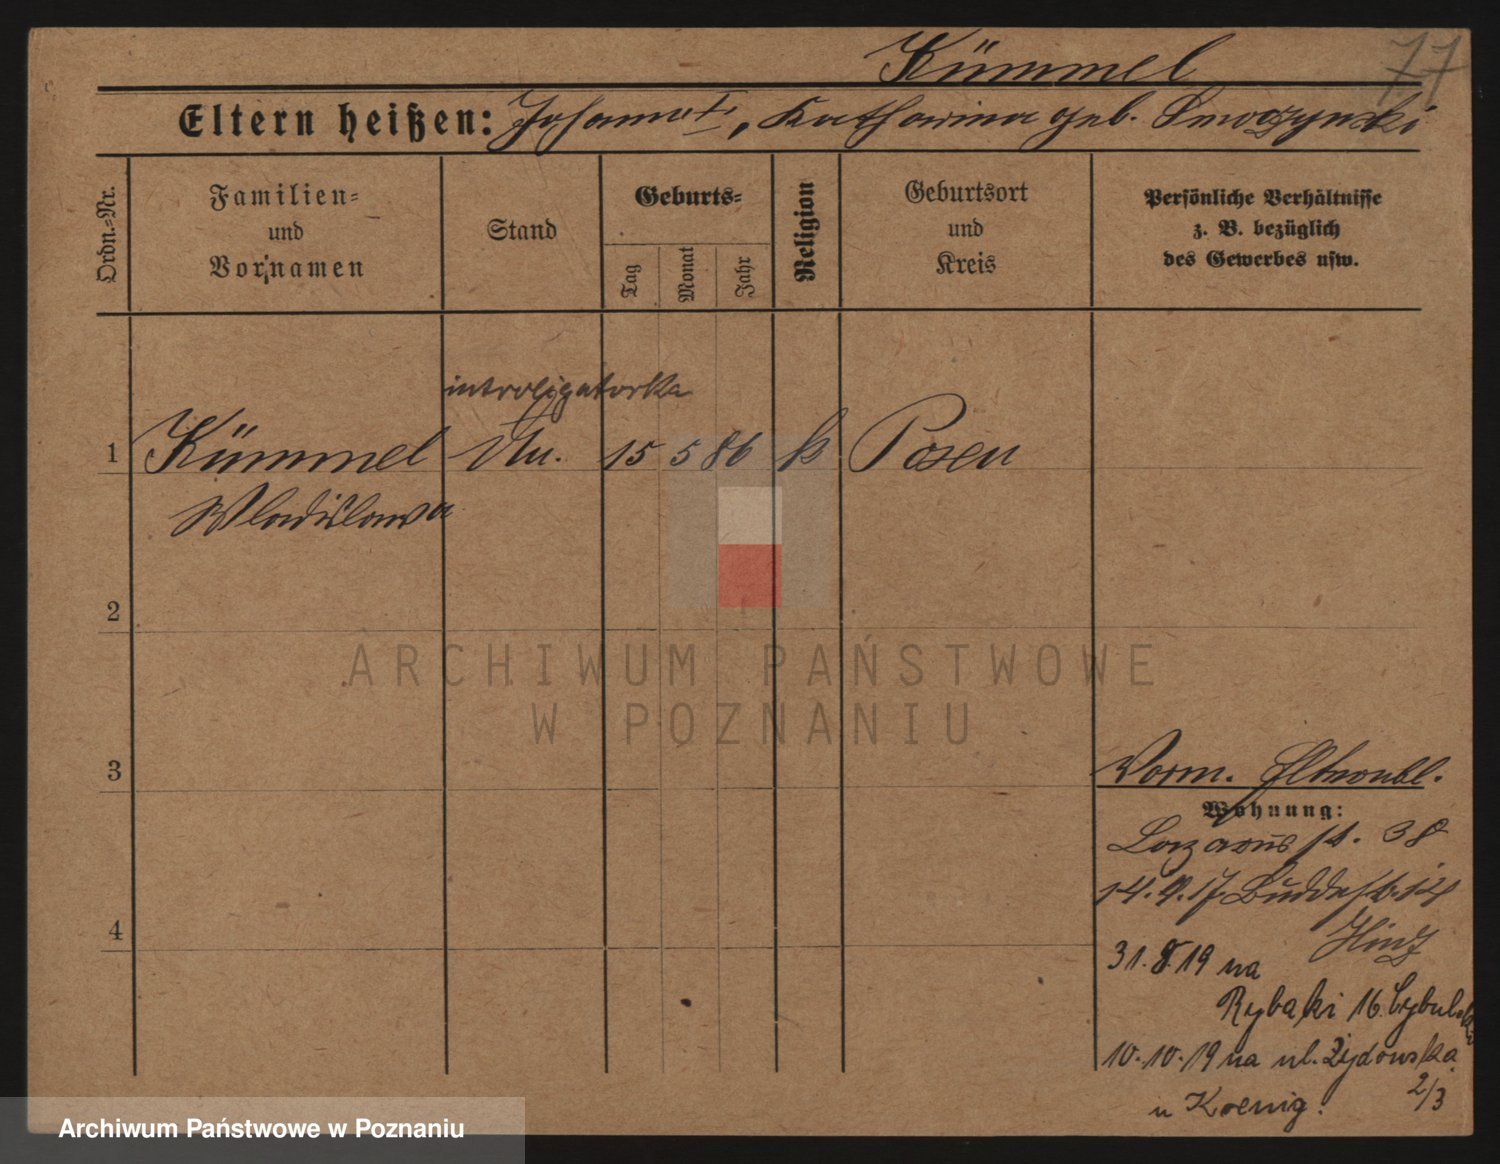 Kümmel 77
Eltern heißen: Johann †, Katharina geb. Smoczynski
Ordn.-Nr.
Familien-
und
Vornamen
Stand
Geburts-
Tag
Monat
Jahr
Religion
Geburtsort
und
Kreis
Persönliche Verhältnisse
z. B. bezüglich
des Gewerbes usw.
introligatorka
1 Kümmel 15 5 86 k Posen
Wladislawa
2
ARCHIWUM PAŃSTWOWE
W POZNANIU
3
Vorm.
Wohnung:
Lazarus st. 38
14. 9. 17. Buddestr. 12
Hinz
4
31. 8. 19 na
Rybaki 16 Cybulska
10.10.19 na ul. Żydowska
2/3
u Koenig.
Archiwum Państwowe w Poznaniu